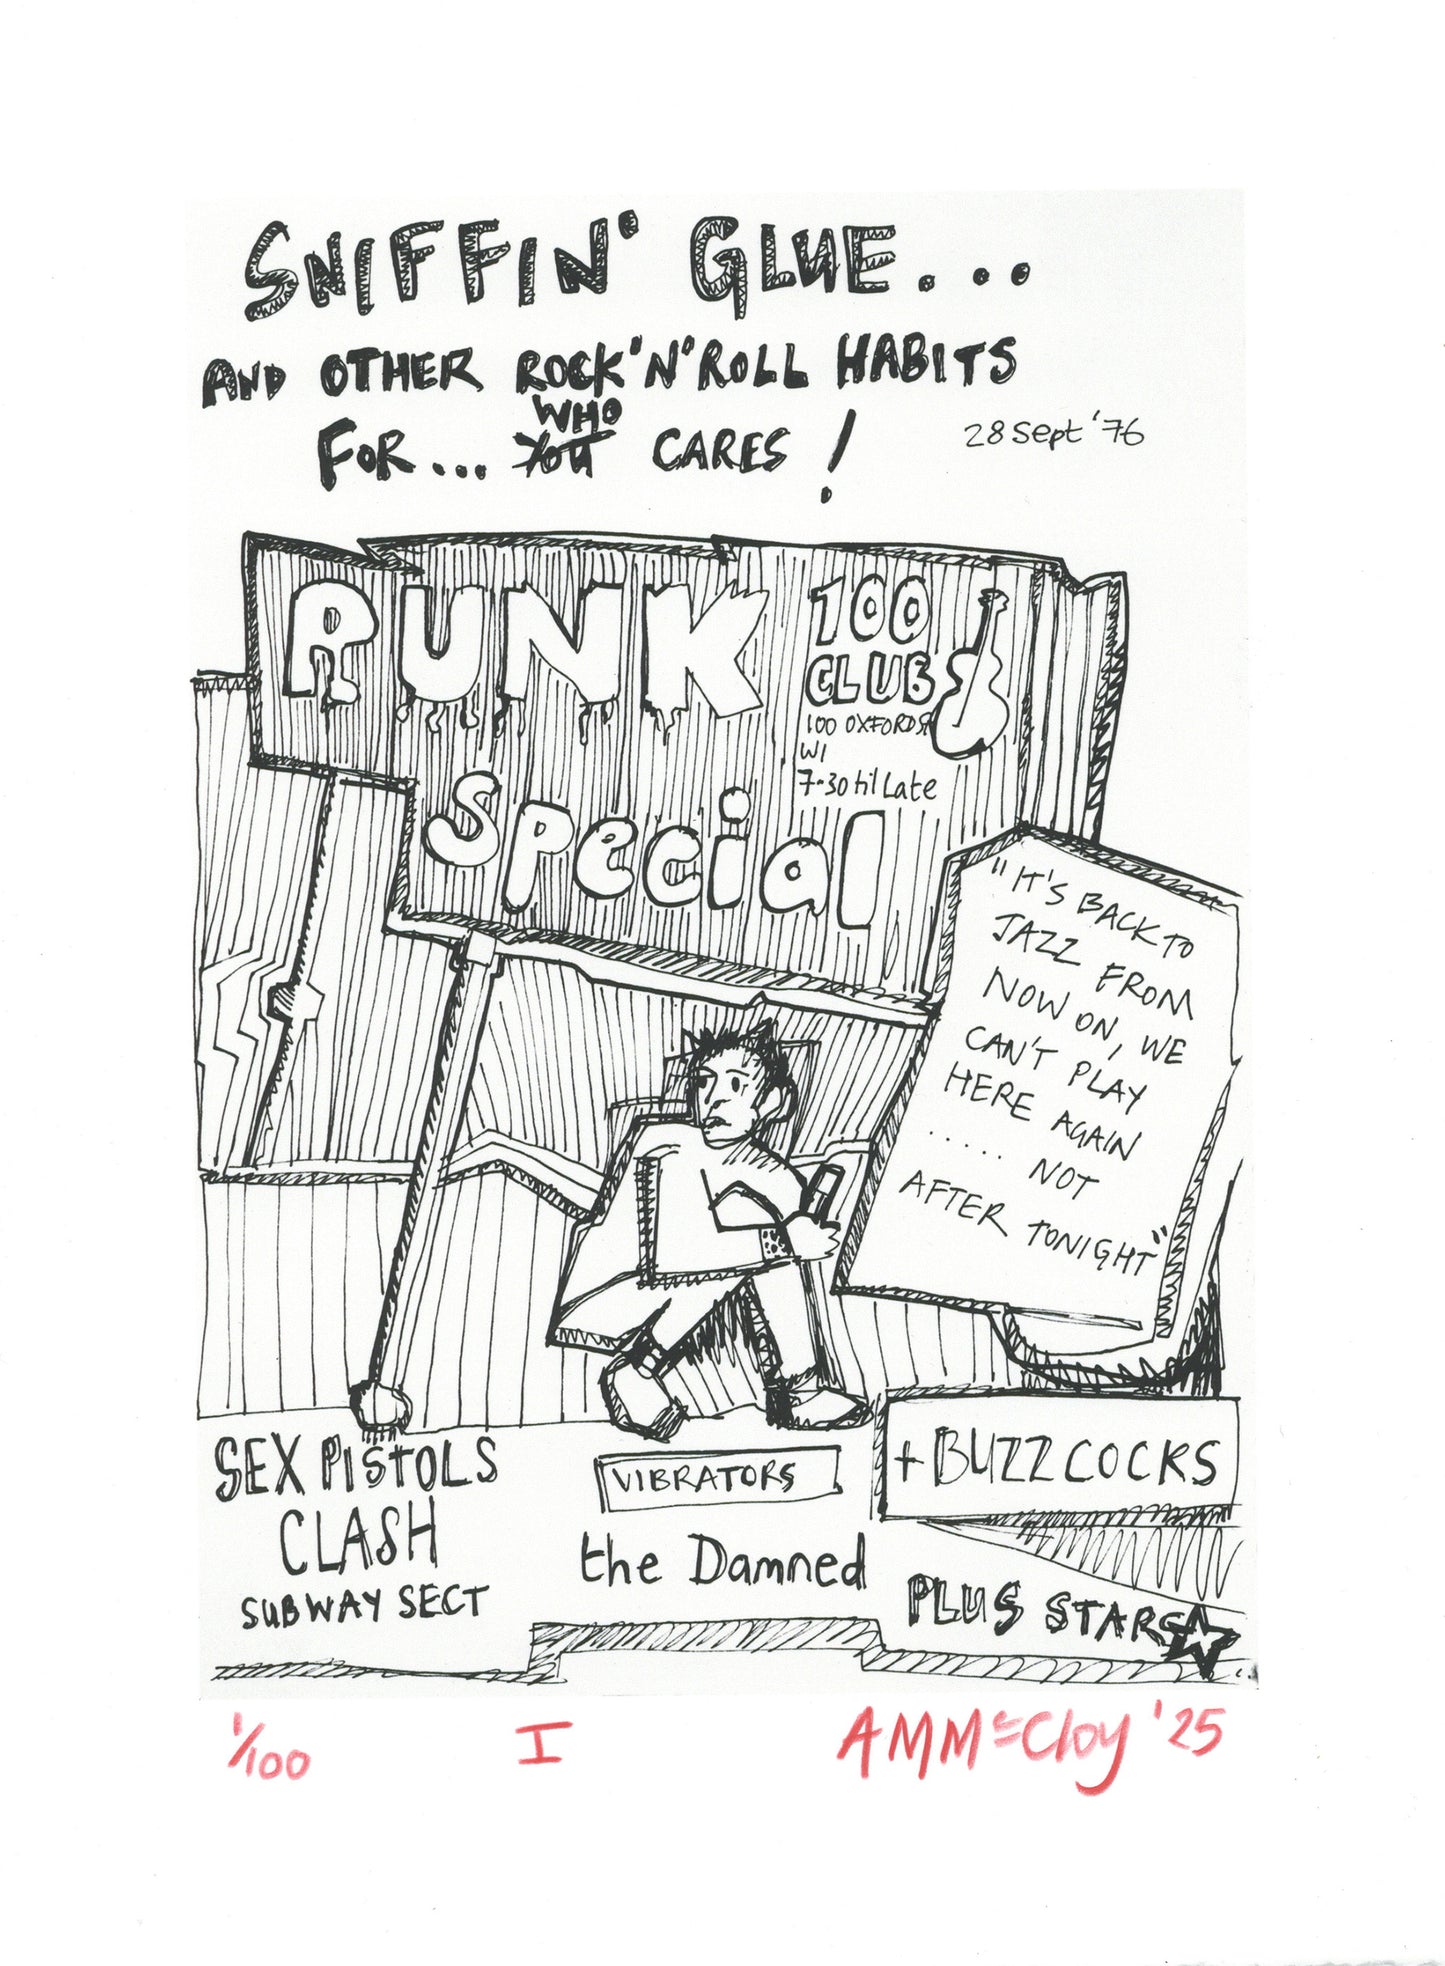 SNIFFIN' GLUE...
AND OTHER ROCK'N'ROLL HABITS
WHO
FOR... YOU CARES!
28 Sept '76
PUNK
Special
100
CLUB
100 OXFORD ST
W1
7-30 til Late
"IT'S BACK TO
JAZZ FROM
NOW ON, WE
CAN'T PLAY
HERE AGAIN
..... NOT
AFTER TONIGHT"
SEX PISTOLS
CLASH
SUBWAY SECT
VIBRATORS
the Damned
+ BUZZCOCKS
PLUS STARS
1/100
I
AMMcCloy '25